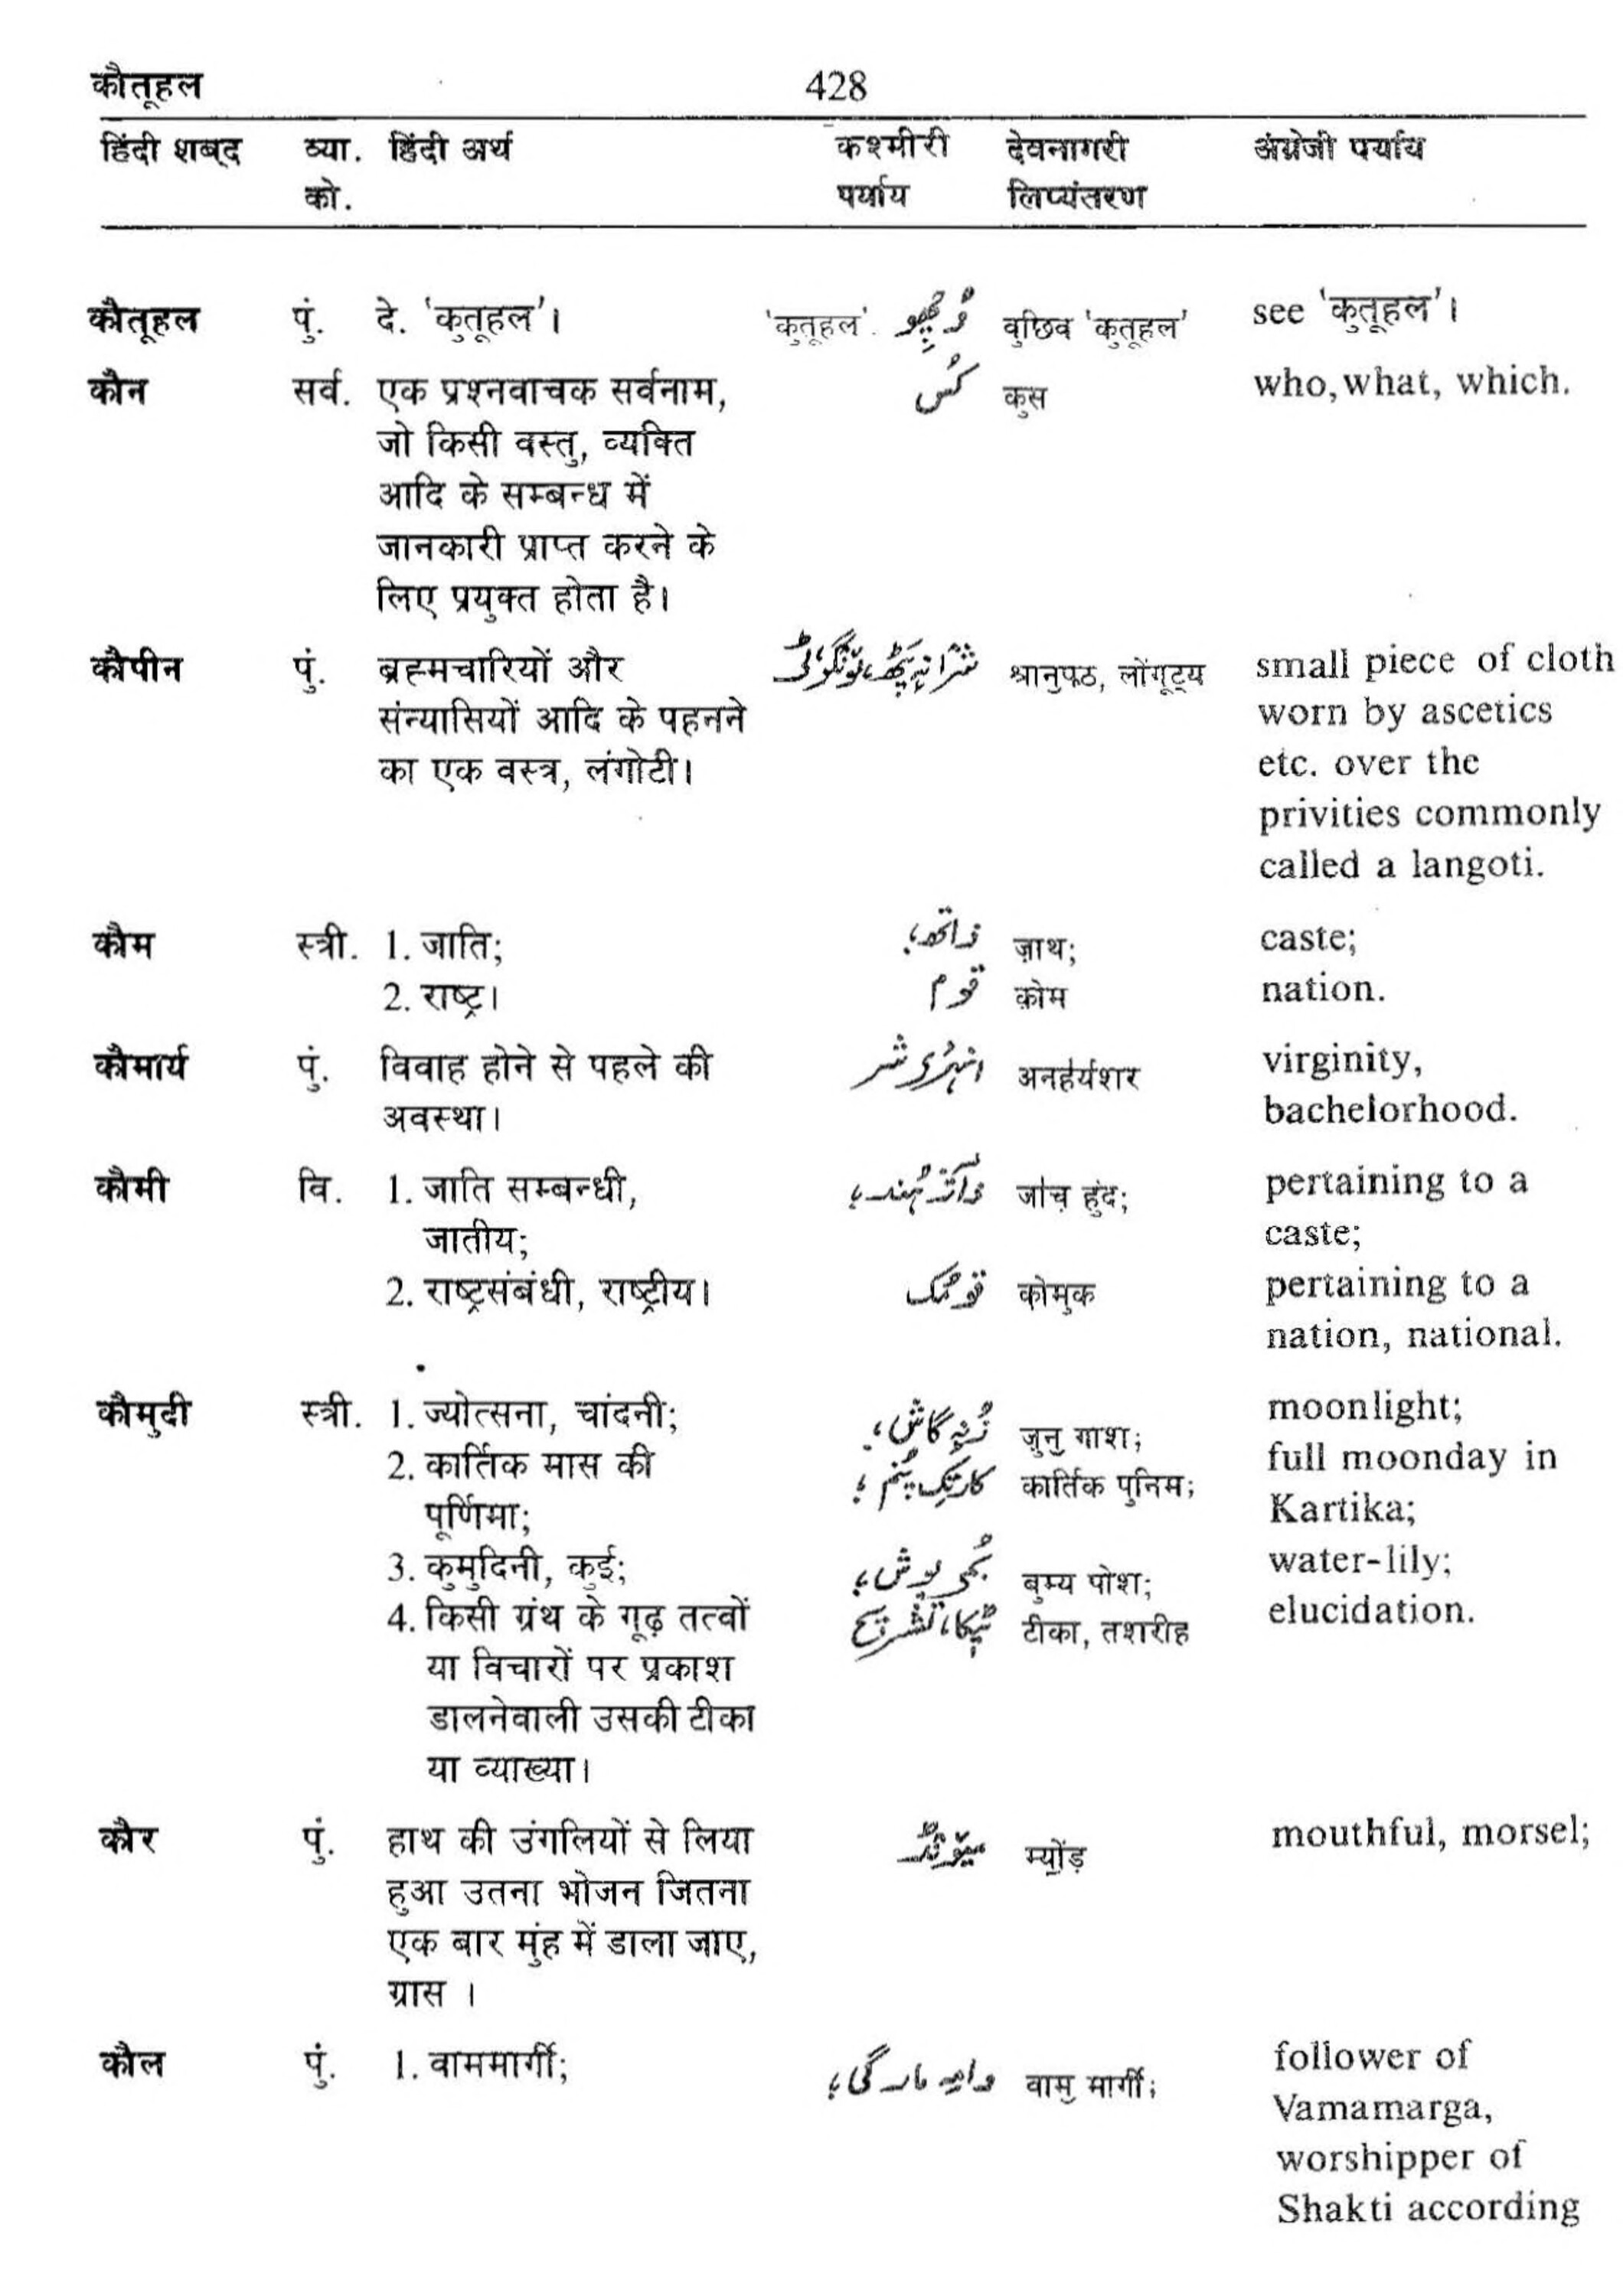 कौतूहल 428
हिंदी शब्द व्या. हिंदी अर्थ कश्मीरी देवनागरी अंग्रेजी पर्याय
को. पर्याय लिप्यंतरण
कौतूहल पुं. दे. 'कुतूहल'। 'कुतूहल'. وُچھِو वुछिव 'कुतूहल' see 'कुतूहल'।
कौन सर्व. एक प्रश्नवाचक सर्वनाम, کُس कुस who, what, which.
जो किसी वस्तु, व्यक्ति
आदि के सम्बन्ध में
जानकारी प्राप्त करने के
लिए प्रयुक्त होता है।
कौपीन पुं. ब्रह्मचारियों और श्रानुपठ, लोंगूट्य small piece of cloth
संन्यासियों आदि के पहनने worn by ascetics
का एक वस्त्र, लंगोटी। etc. over the
privities commonly
called a langoti.
कौम स्त्री. 1. जाति; ذاتھ؛ ज़ाथ; caste;
2. राष्ट्र। قوم क़ोम nation.
कौमार्य पुं. विवाह होने से पहले की अनहॅर्यशर virginity,
अवस्था। bachelorhood.
कौमी वि. 1. जाति सम्बन्धी, हुंद; pertaining to a
जातीय; caste;
2. राष्ट्रसंबंधी, राष्ट्रीय। قومُک क़ोमुक pertaining to a
nation, national.
कौमुदी स्त्री. 1. ज्योत्सना, चांदनी; زُنہٕ گاش؛ ज़ुनु॒ गाश; moonlight;
2. कार्तिक मास की کارتِک پُنِم؛ कार्तिक पुनिम; full moonday in
पूर्णिमा; Kartika;
3. कुमुदिनी, कुई; پوش؛ बुम्य पोश; water-lily;
4. किसी ग्रंथ के गूढ़ तत्वों ٹیٖکا، تشریح टीका, तशरीह elucidation.
या विचारों पर प्रकाश
डालनेवाली उसकी टीका
या व्याख्या।
कौर पुं. हाथ की उंगलियों से लिया म्योंड़ mouthful, morsel;
हुआ उतना भोजन जितना
एक बार मुंह में डाला जाए,
ग्रास ।
कौल पुं. 1. वाममार्गी; وامہٕ مارگی؛ वामु॒ मार्गी; follower of
Vamamarga,
worshipper of
Shakti according